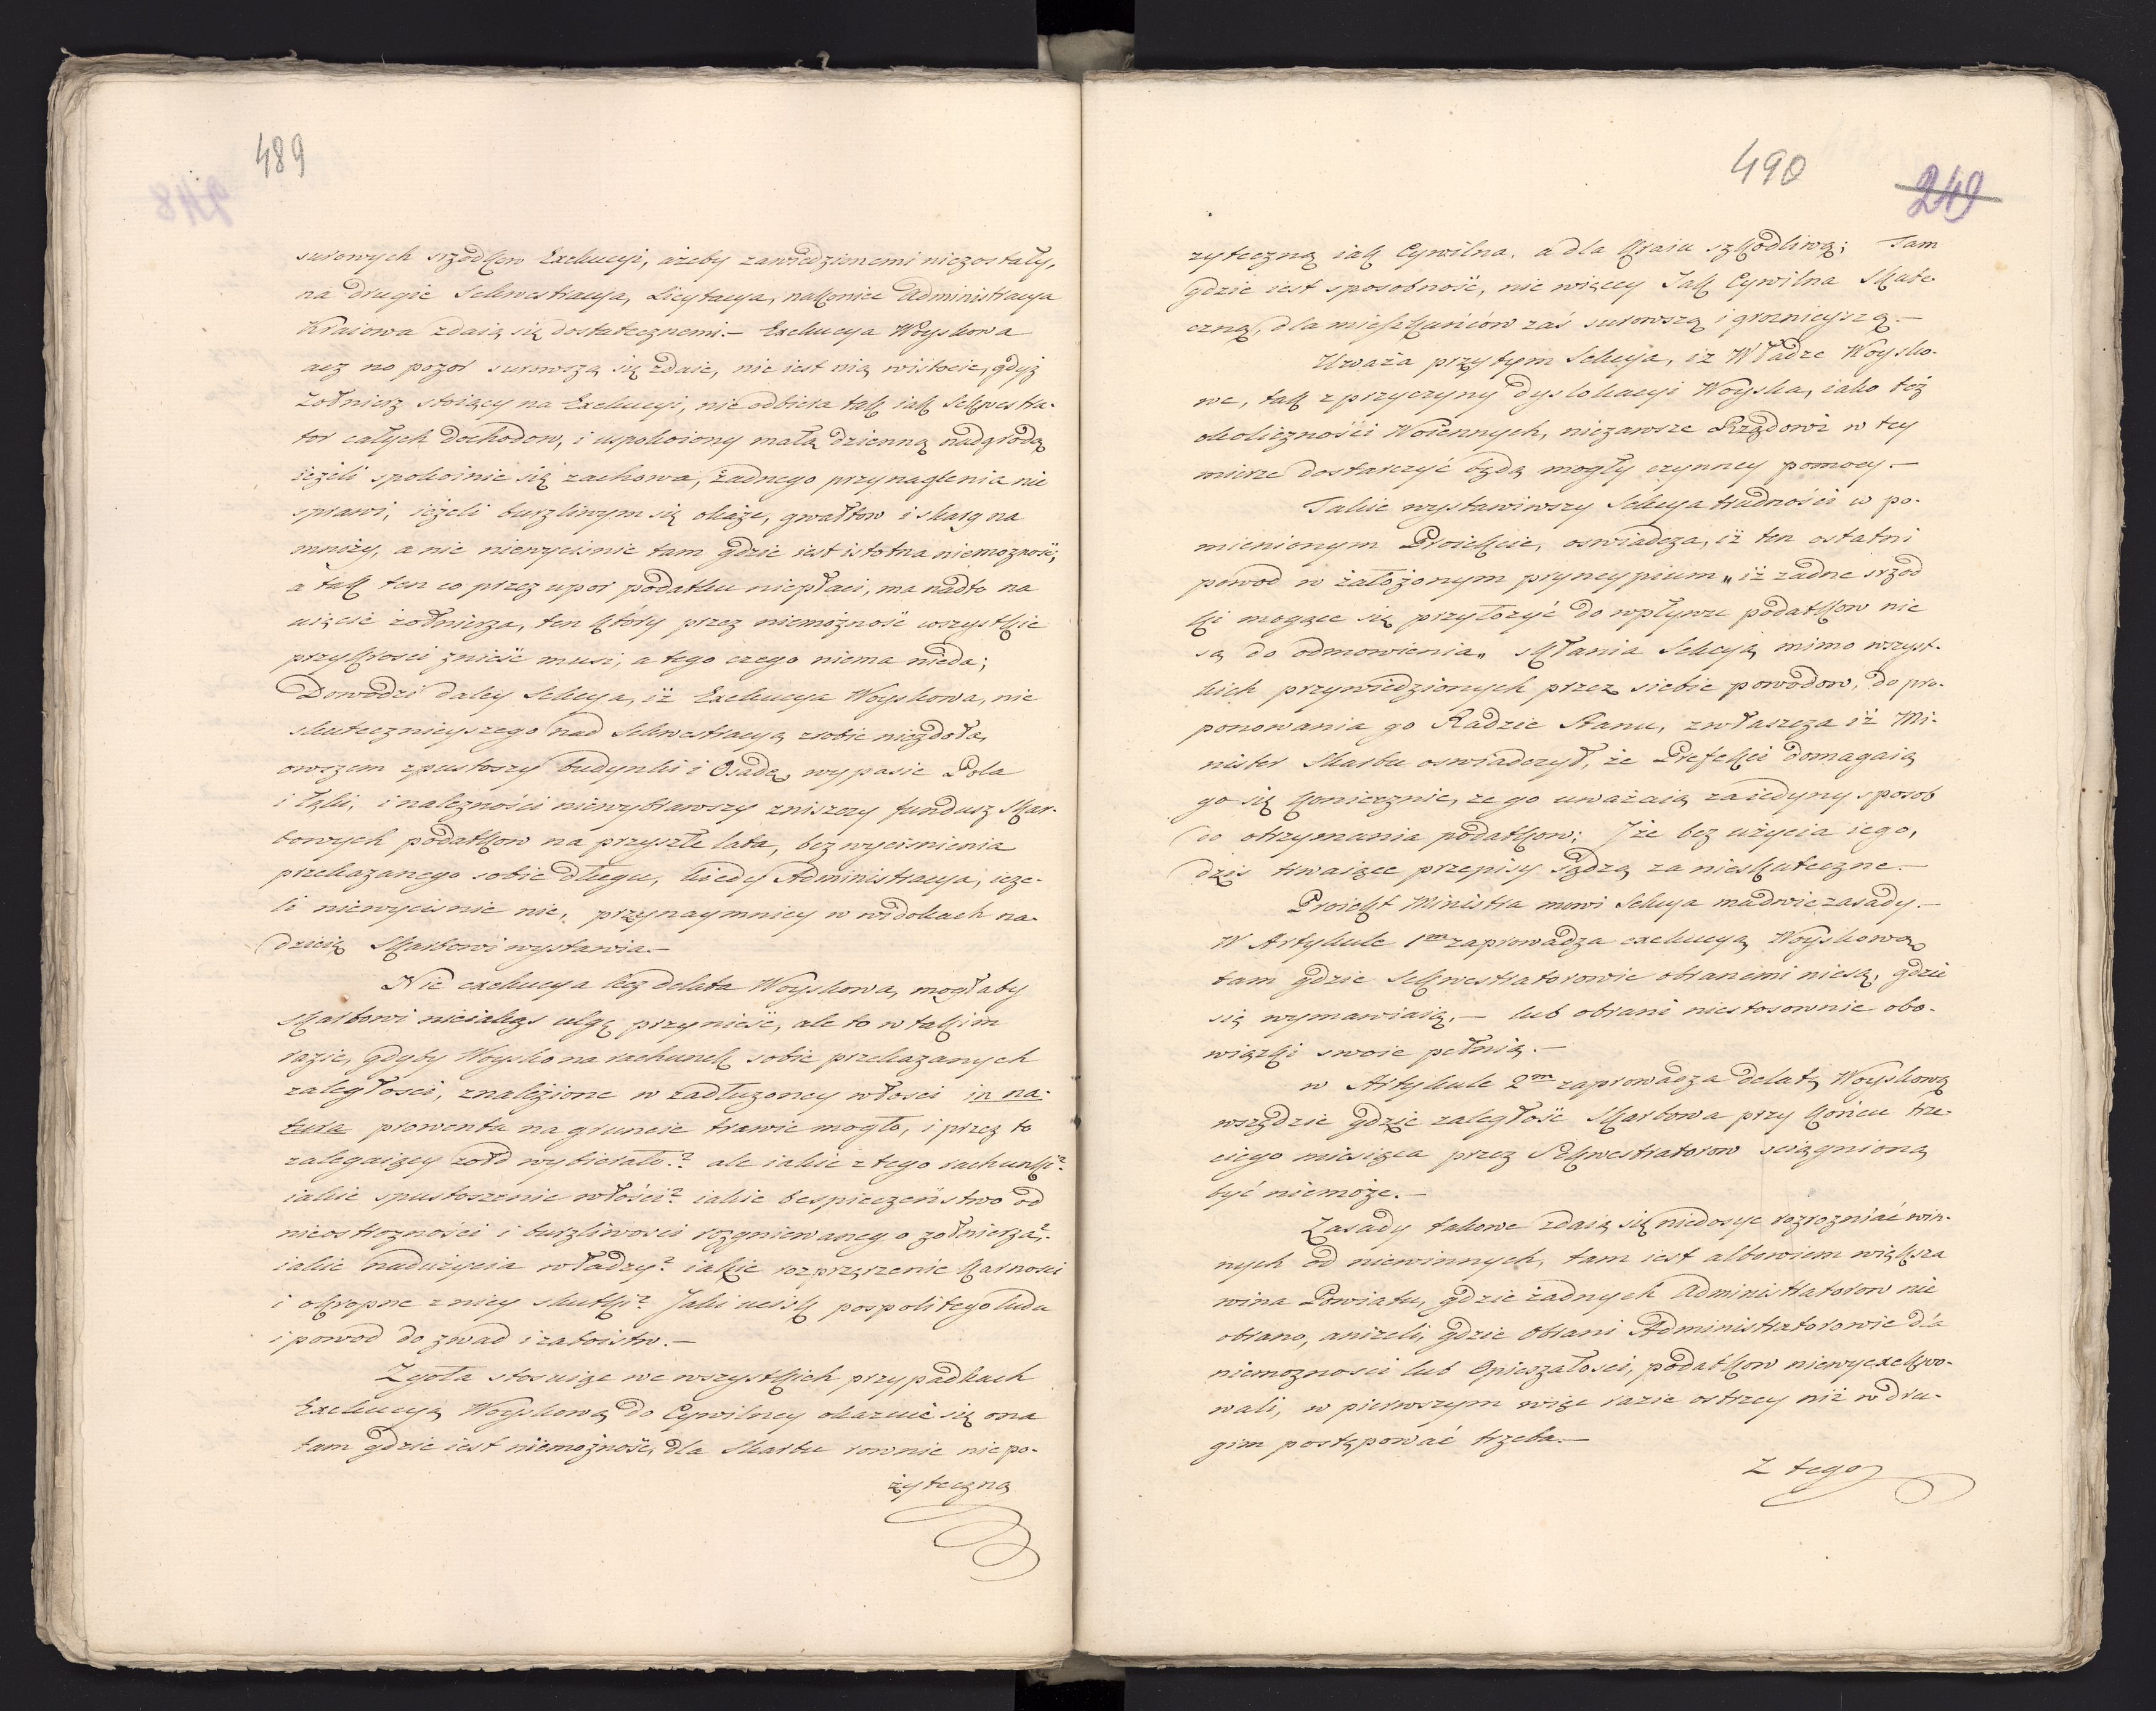 489
surowych srzodkow Exekucyi, ażeby zawiedzionemi niezostały,
na drugie Sekwestracyia, Licytacya, nakoniec Administracya
Kraiowa zdaią się dostatecznemi.– Exekucya Woyskowa
acz no pozor surowszą się zdaie, nie iest nią wistocie, gdyż
Zołnierz stoiący na Exekucyi, nie odbiera tak iak Sekwestra-
tor całych Dochodow, i uspokoiony małą dzienną nadgrodą
ieżeli spokoinie się zachowa, żadnego przynaglenia nie
sprawi, ieżeli burzliwym się okaże, gwałtow i skarg na
mnoży, a nic niewyciśnie tam gdzie iest istotna niemozność;
a tak ten co przez upor podatku niepłaci, ma nadto na
uięcie żołnierza, ten który przez niemożność wszystkie
przykrosci znieść musi, a tego czego niema nieda;
Dowodzi daley Sekcya, iż Exekucya Woyskowa, nic
skutecznieyszego nad Sekwestracyą zrobic niezdoła,
owszem spustoszy budynki i Osadę, wypasie Pola
i Łąki, i nalezności niewybrawszy zniszczy fundusz Skar-
bowych podatkow na przyszłe lata, bez wyciśnienia
przekazanego sobie Długu, kiedy Administracya, ieże-
li niewyciśnie nic, przynaymniey w widokach na-
dzieię Skarbowi wystawia.–
Nie exekucya lecz delata Woyskowa, mogłaby
Skarbowi nieiakąs ulgę przynieść, ale to w takim
razie, gdyby Woysko na rachunek sobie przekazanych
zaległości, znalezione w zadłużoney włosci in na-
tura prowenta na gruncie trawic mogło, i przez to
zalegaiący żołd wybierało?? ale iakie z tego rachunki?
iakie spustoszenie włości? iakie bespieczeństwo od
nieostrozności i burzliwosci rozgniewanego żołnierza?
iakie nadużycia władzy? iakie rozprzężenie karnosci
i okropne z niey skutki? Jaki ucisk pospolitego ludu
i powod do zwad i zaboistw.–
Zgoła stosuiąc we wszystkich przypadkach
Exekucyą Woyskową do Cywilney okazuie się ona
tam gdzie iest niemożność, dla Skarbu rownie niepo-
żyteczną
490
249
zyteczną iak Cywilna, a dla Kraiu szkodliwą; Tam
gdzie iest sposobność, nie więcey Jak Cywilna Skute-
czną, dla mieszkańców zaś surowszą i groznieyszą.–
Uważa przytym Sekcya, iż Władze Woysko-
we, tak z przyczyny dyslokacyi Woyska, iako też
okoliczności Woiennych, niezawsze Rządowi w tey
mierze dostarczyć będą mogły czynney pomocy.–
Takie wystawiwszy Sekcya trudności w po-
mienionym Proiekcie, oswiadcza, iż ten ostatni
powod w założonym pryncypium „ iż żadne srzod
ki mogące się przyłożyć do wpływu podatkow nie
są do odmowienia„ skłania Sekcyą mimo wszyst-
kich przywiedzionych przez siebie powodow, do pro-
ponowania go Radzie Stanu, zwłaszcza iż Mi-
nister Skarbu oswiadczył, że Prefekci domagaią
go się koniecznie, ze go uważaią za iedyny sposob
do otrzymania podatkow; I że bez użycia iego,
dziś trwaiące przepisy sądzą za nieskuteczne.–
Proiekt Ministra mowi Sekcya ma dwie zasady.–
W Artykule 1m zaprowadza exekucyą Woyskową
tam gdzie Sekwestratorowie obranemi niesą, gdzie
się wymawiaią,– lub obrani niestosownie obo-
wiązki swoie pełnią.–
w Artykule 2m zaprowadza delatę Woyskową
wszędzie gdzie zaległość Skarbowa przy końcu trze-
ciego miesiąca przez Sekwestratorow sciągnioną
być niemoże.–
Zasady takowe zdaią się niedosyc rozrozniać win-
nych od niewinnych, tam iest albowiem większa
wina Powiatu, gdzie żadnych Administratorow nie
obrano, aniżeli, gdzie Obrani Administratorowie dla
niemozności lub Opieszałości, podatkow niewyexekwo-
wali, w pierwszym więc razie ostrzey niż w dru-
gim postępować trzeba.–
Z tego